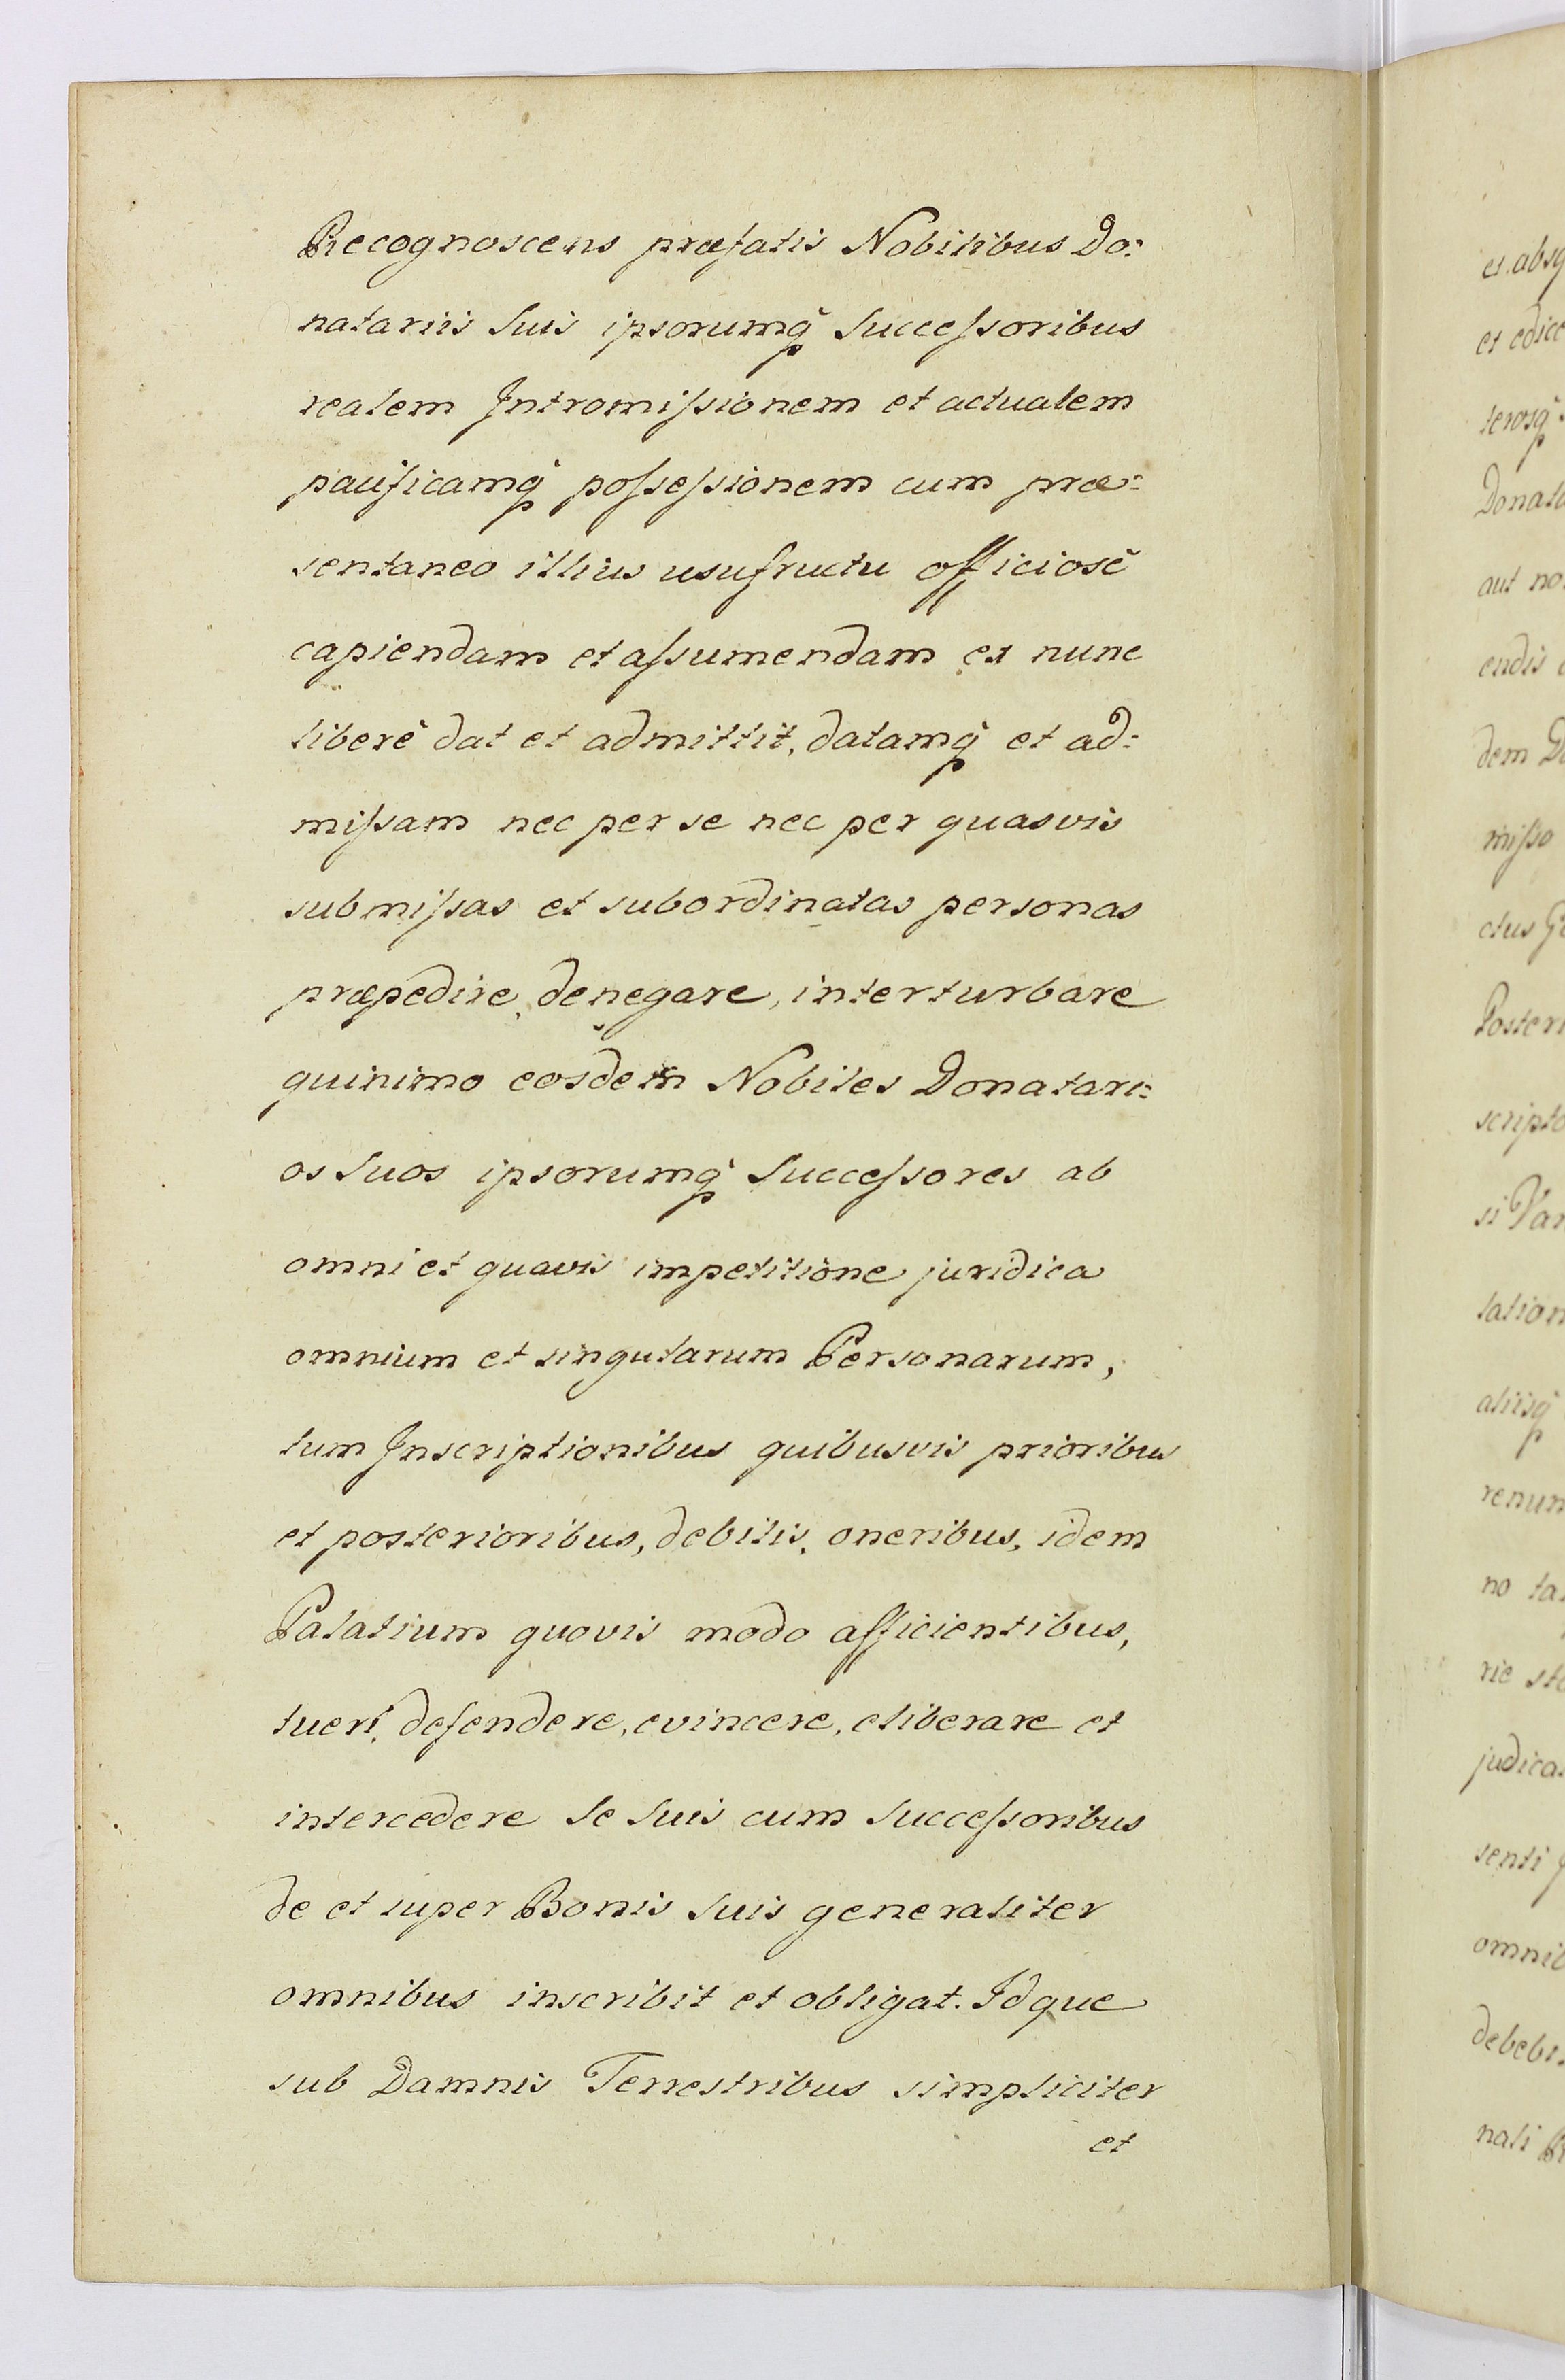 Recognoscens præfatis Nobilibus Do:
natariis Suis ipsorumq̀ Succeſsoribus
realem Intromiſsionem et actualem
pacificamq̀ poſseſsionem cum præ:
sentaneo illius usufructu officiosè
capiendam et aſsumendam ex nunc
liberè dat et admittit, datamq̀ et ad:
miſsam nec per se nec per quasvis
submiſsas et subordinatas personas
præpedire, denegare, interturbare
quinimo eosdem Nobiles Donatari:
os Suos ipsorumq̀ Succeſsores ab
omni et quavis impetitione juridica
omnium et singularum Personarum,
tum Inscriptionibus quibusvis prioribus
et posterioribus, debitis, oneribus, idem
Palatium quovis modo afficientibus,
tueri, defendere, evincere, eliberare et
intercedere Se Suis cum Succeſsoribus
de et super Bonis Suis generaliter
omnibus inscribit et obligat. Idque
sub Damnis Terrestribus simpliciter
et
et absq
et edice
terosq̀
Donata
aut no
endis
dem
miſso
ctus
Posteri
scripto
si Var
tation
aliisq̀
renun
no ta
rie
judica
senti
omnib
debebi
nali